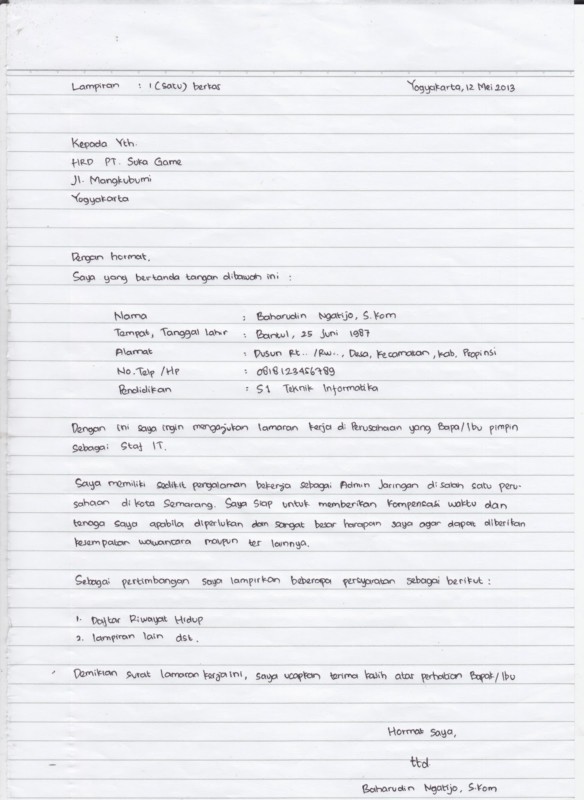 Lampiran : 1 (satu) berkas Yogyakarta, 12 Mei 2013
Kepada Yth.
HRD PT. Suka Game
Jl. Mangkubumi
Yogyakarta
Dengan hormat,
Saya yang bertanda tangan dibawah ini :
Nama : Baharudin Ngatijo, S.Kom
Tempat, Tanggal lahir : Bantul, 25 Juni 1987
Alamat : Dusun Rt.. /Rw.., Desa, Kecamatan, Kab, Propinsi
No.Telp /Hp : 0818123456789
Pendidikan : S1 Teknik Informatika
Dengan ini saya ingin mengajukan lamaran kerja di Perusahaan yang Bapa/Ibu pimpin
sebagai Staf IT.
Saya memiliki sedikit pengalaman bekerja sebagai Admin Jaringan di salah satu peru-
sahaan di kota Semarang. Saya siap untuk memberikan kompensasi waktu dan
tenaga saya apabila diperlukan dan sangat besar harapan saya agar dapat diberikan
kesempatan wawancara maupun tes lainnya.
Sebagai pertimbangan saya lampirkan beberapa persyaratan sebagai berikut :
1. Daftar Riwayat Hidup
2. lampiran lain dst.
Demikian surat lamaran kerja ini, saya ucapkan terima kasih atas perhatian Bapak/Ibu
Hormat Saya,
ttd
Baharudin Ngatijo, S.Kom